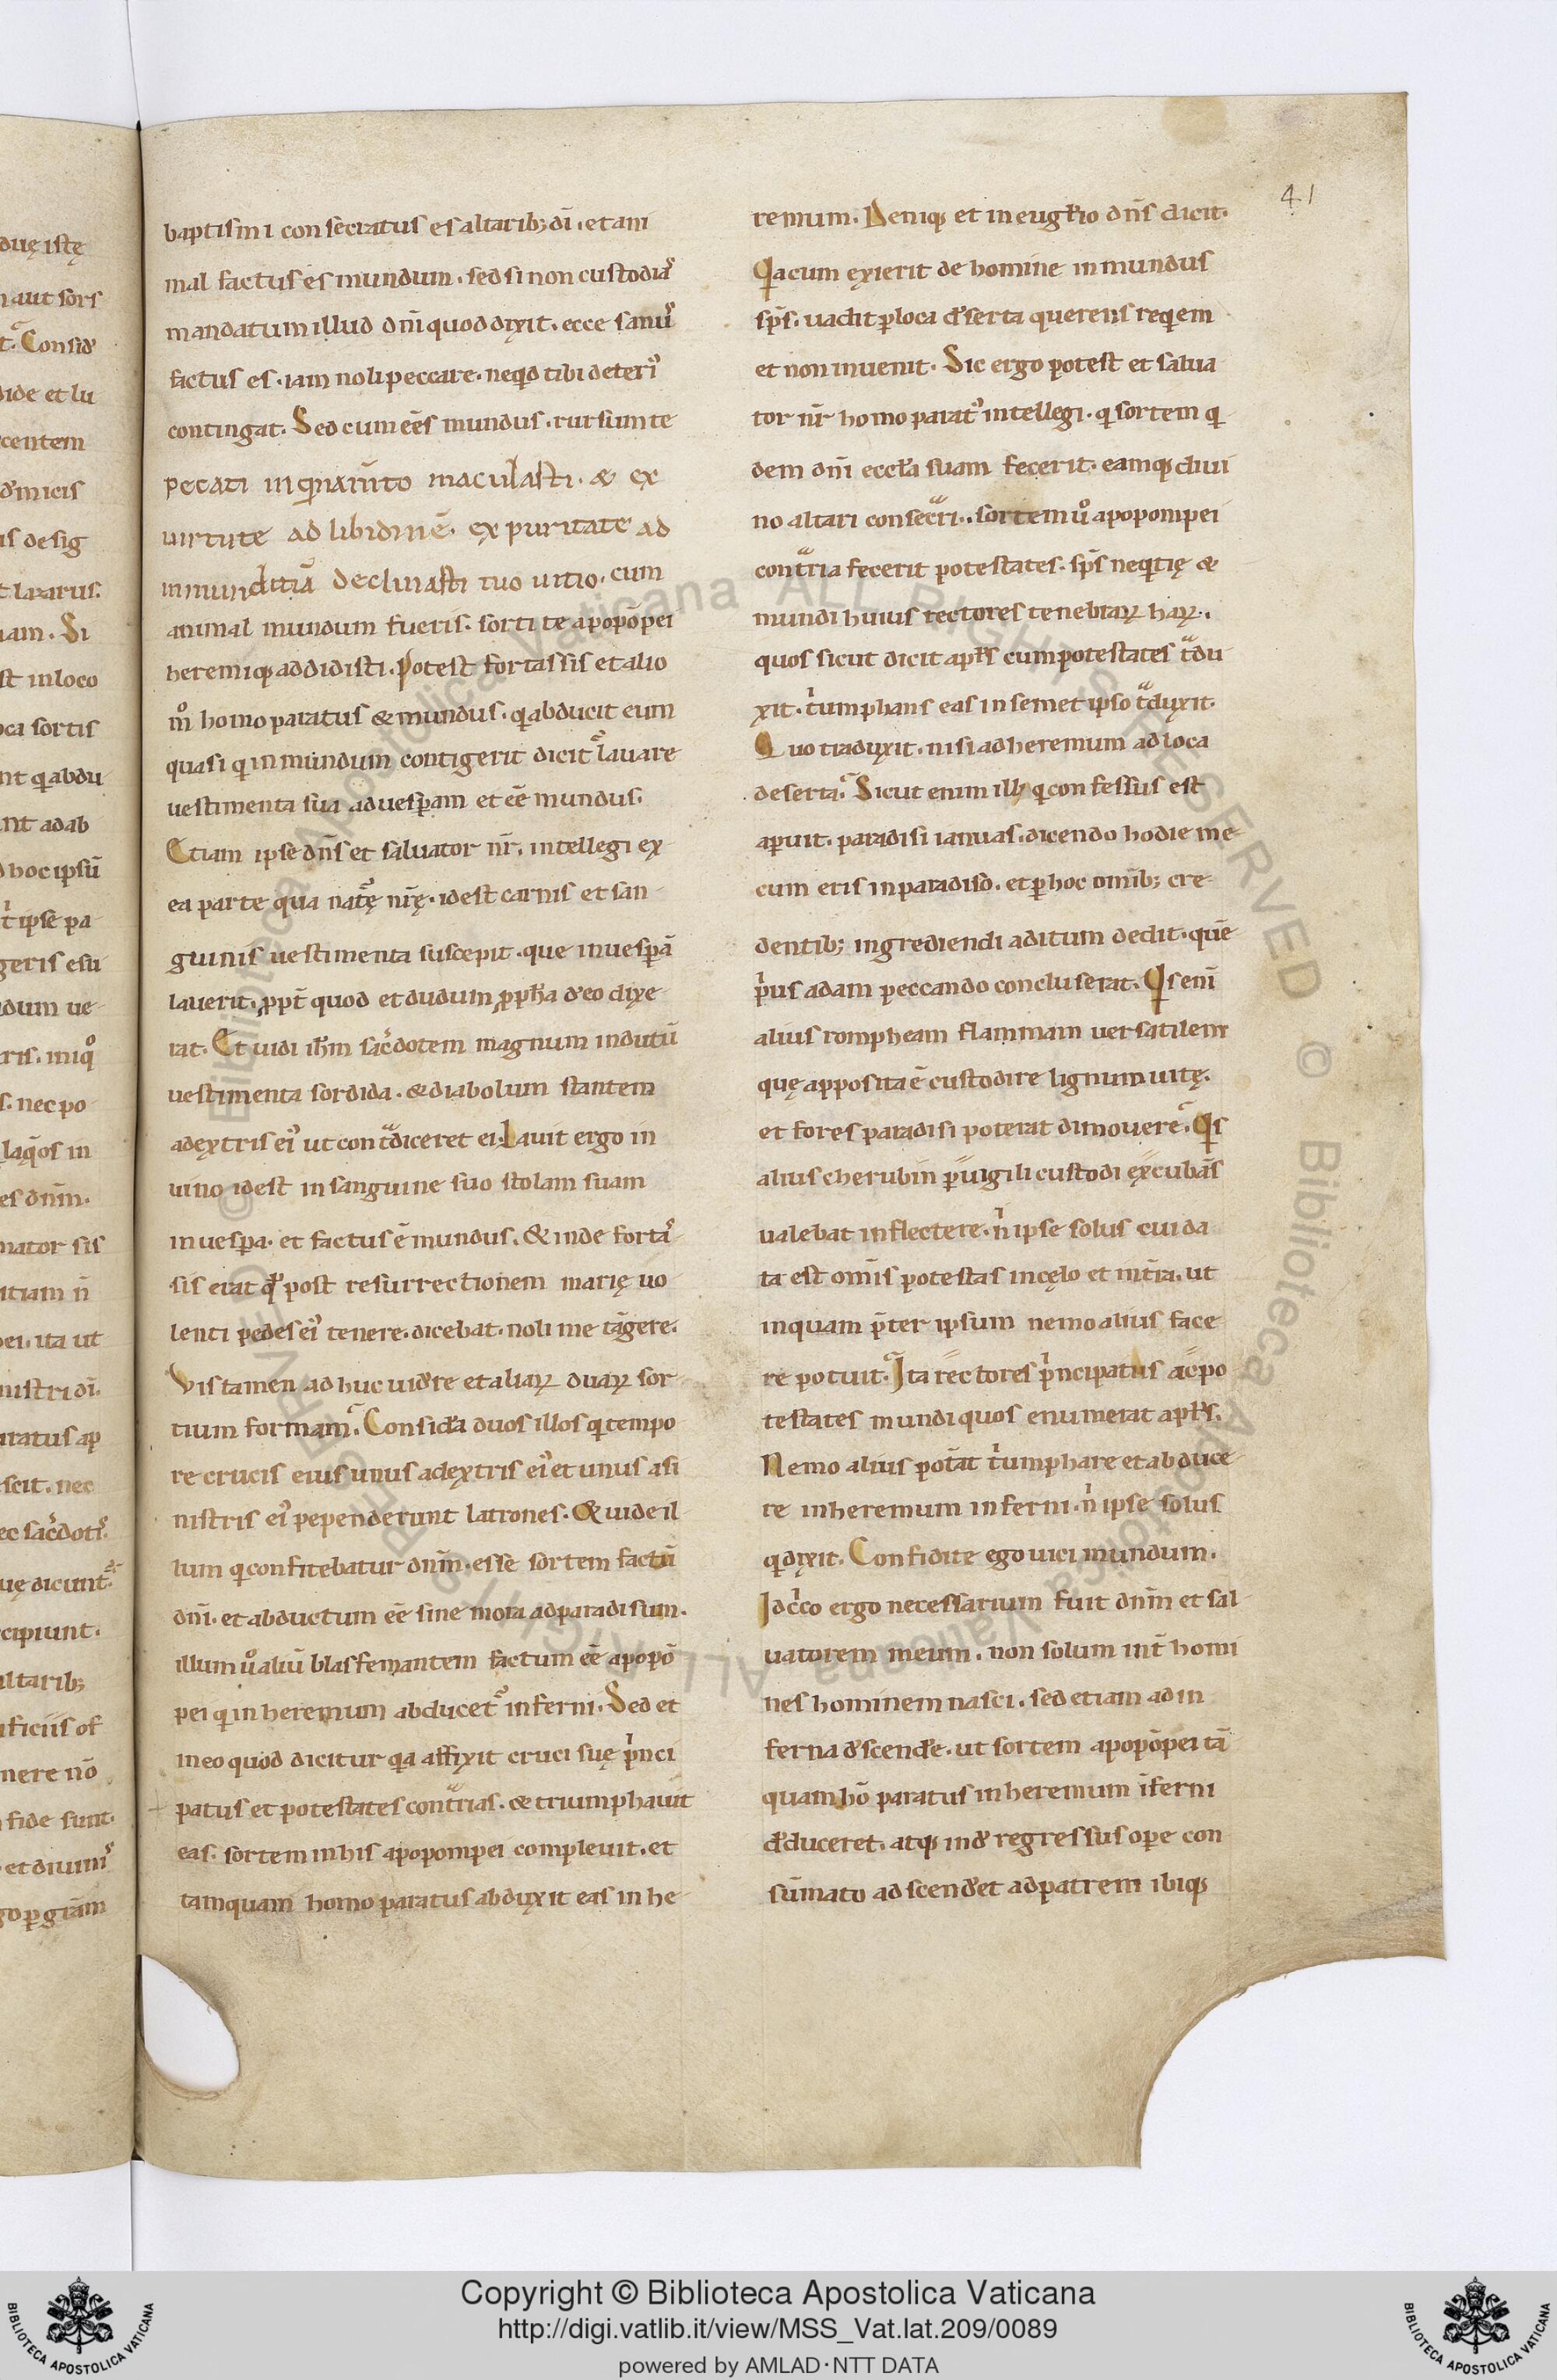 41
baptismi consecratus es altarib; dī. et am
mal factus es mundum. sed si non custodiaˀ
mandatum illud dn̄i quod dixit. ecce sanuˀ
factus es. iam noli peccare. neqd tibi deteriˀ
contingat. Sed cum eēs mundus. rursum te
peccati inquinam̄to maculasti. & ex
uirtute ad libidinē. ex puritate ad
inmunditiā declinasti tuo uitio. cum
animal mundum fueris. sorti te apopōpei
heremiq; addidisti. Potest fortassis et alio
m̊ homo paratus & mundus. qi abducit eum
quasi qi inmundum contigerit dicitˀ lauare
uestimenta sua ad uesꝑam et eē mundus.
Etiam ipse dn̄s et saluator nr̄. intellegi ex
ea parte qua natˀę nr̄ę. idest carnis et san
guinis uestimenta suscepit. que in uesꝑā
lauerit. ꝓpt̄ quod et dudum ꝓph̄a d'eo dixe
rat. Et uidi ih̄m sac̓dotem magnum indutū
uestimenta sordida. & diabolum stantem
a dextris eiˀ ut contᵃdiceret ei. Lauit ergo in
uino idest in sanguine suo stolam suam
in uesꝑa. et factus ē mundus. & inde fortaˀ
sis erat qd post resurrectionem marię uo
lenti pedes eiˀ tenere. dicebat. noli me tāgere.
Vis tamen adhuc uid'e re et aliaꝝ duaꝝ sor
tium formam. Consid'a duos illos qi tempo
re crucis eius unus a dextris eiˀ et unus a si
nistris eiˀ pependerunt latrones. & uide il
lum qi confitebatur dn̄m. esse sortem factū
dn̄i. et abductum eē sine mora ad paradisum.
illum ů aliū blasfemantem factum eē apopō
pei qi in heremum abducetˀ inferni. Sed et
in eo quod dicitur qa affixit cruci suę pⁱnci
patus et potestates contᵃrias. & triumphauit
eas. sortem in his apopompei compleuit. et
tamquam homo paratus abduxit eas in he
remum. Deniq; et in eugl̄io dn̄s dicit.
Qia cum exierit de homine inmundus
sp̄s. uadit ꝑ loca d'serta querens reqiem
et non inuenit. Sic ergo potest et salua
tor nr̄ homo paratˀ intellegi. qi sortem qi
dem dn̄i eccl̄a suam fecerit. eamq; diui
no altari consecᵃri. sortem ů apopompei
contᵃria fecerit potestates. sp̄s neqitię &
mundi huius rectores tenebraꝝ haꝝ.
quos sicut dicit apl̄s cum potestates tᵃdu
xit. tⁱumphans eas in semet ipso tᵃduxit.
Quo traduxit. nisi ad heremum ad loca
deserta. Sicut enim illi qi confessus est
aꝑuit. paradisi ianuas. dicendo hodie me
cum eris in paradiso. et ꝑ hoc omīb; cre
dentib; ingrediendi aditum dedit. quē
pⁱus adam peccando concluserat. Qis enī
alius rompheam flammam uersatilem
quę apposita ē custodire lignum uitę.
et fores paradisi poterat dimouere. Qis
alius cherubin ꝑuigili custodi excubās
ualebat inflectere. nⁱ ipse solus cui da
ta est omīs potestas in cęlo et int̄ra. ut
inquam p̄ter ipsum nemo alius face
re potuit. Ita rectores pⁱncipatus ac po
testates mundi quos enumerat apl̄s.
Nemo alius potāt tⁱumphare et abduce
re in heremum inferni. nⁱ ipse solus
qi dixit. Confidite ego uici mundum.
Idcⁱco ergo necessarium fuit dn̄m et sal
uatorem meum. non solum int̄ homi
nes hominem nasci. sed etiam ad in
ferna d'scend'e. ut sortem apopōpei tā
quam hō paratus in heremum īferni
d'duceret. atq; ind' regressus oꝑe con
sūmato ascend'et ad patrem ibiq;
Copyright © Biblioteca Apostolica Vaticana
http://digi.vatlib.it/view/MSS_Vat.lat.209/0089
powered by AMLAD·NTT DATA
BIBLIOTECA APOSTOLICA VATICANA
BIBLIOTECA APOSTOLICA VATICANA